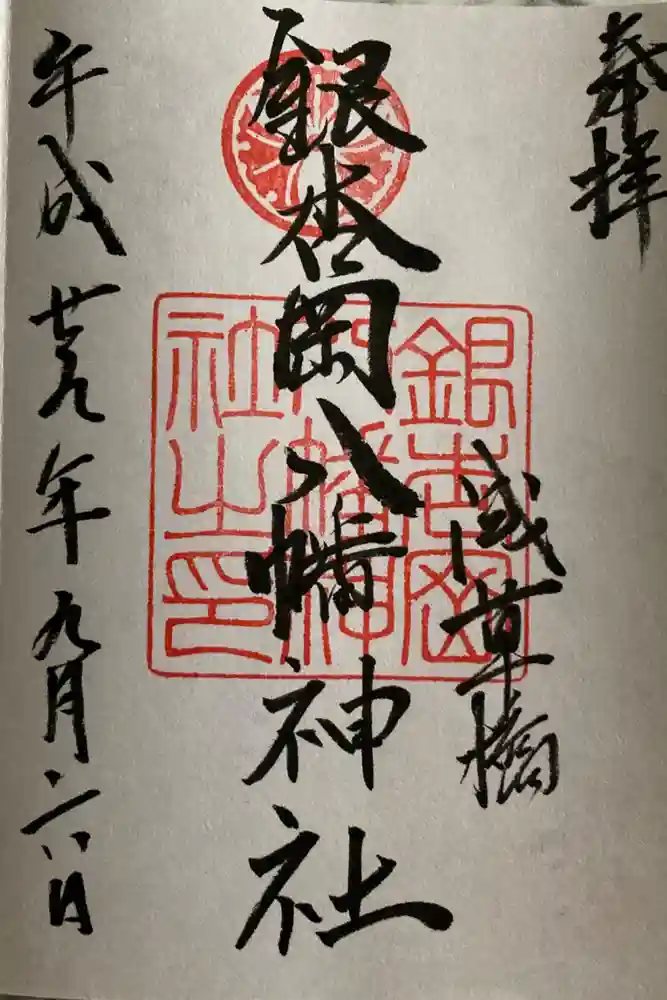 奉拝
浅草橋
銀杏岡八幡神社
平成廿九年九月六日
銀杏岡
八幡神
社之印